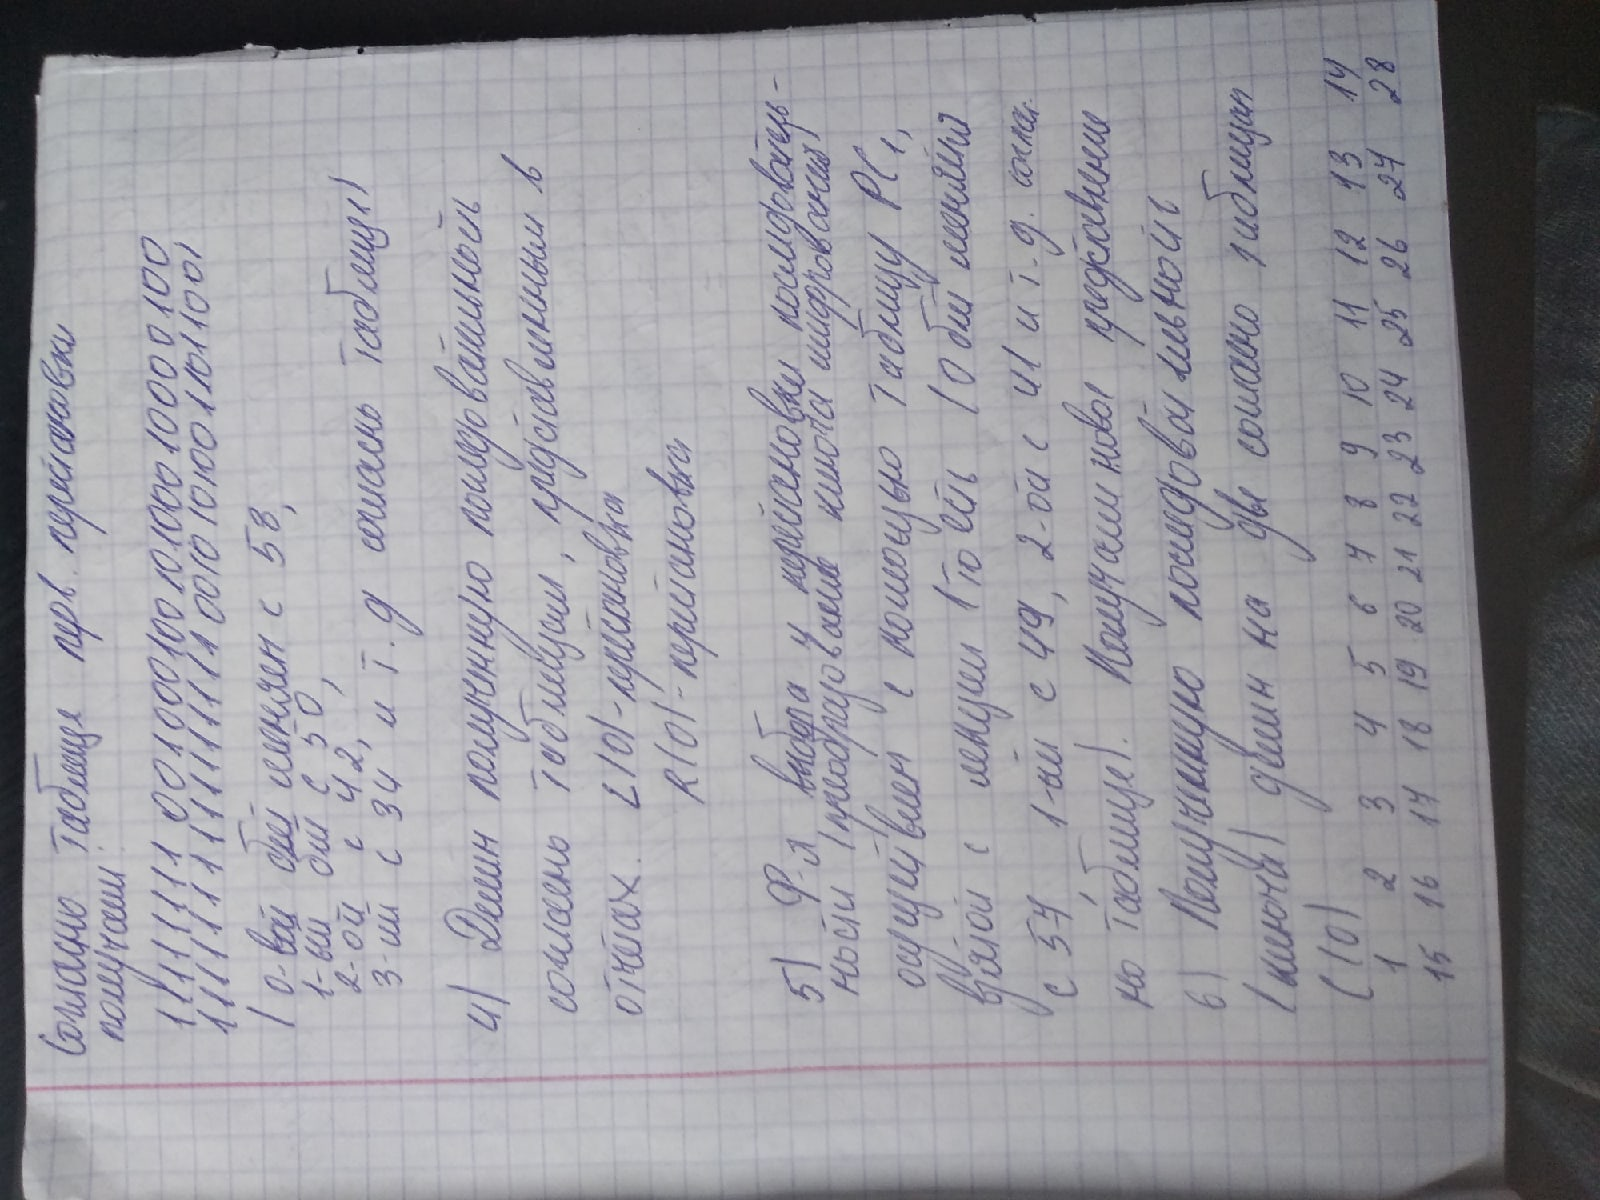 Согласно таблице перв. перестановки
получаем:
11111111 0010001001010001000 0100
11111111111111110010101001101 1001
( 0-вой бит меняем с 58,
1-ый бит с 50,
2-ой с 42,
3-ий с 34 и т.д согласно таблице)
4) Делим полученную последовательность
согласно таблицам, представленным в
отчётах. L(0)-перестановка
R(0)-перестановка
5) Ф-я выбора и перестановки последователь-
ности (преобразование ключа шифрования)
осуществляем с помощью таблицы PC1,
взятой с лекции (то есть 0 бит меняем
с 57, 1-ый с 49, 2-ой с 41 и т.д. соглас.
но таблице). Получаем новое представление
6) Полученную последовательность
(ключа) делим на две согласно таблицам
C(0)
1 2 3 4 5 6 7 8 9 10 11 12 13 14
15 16 17 18 19 20 21 22 23 24 25 26 27 28